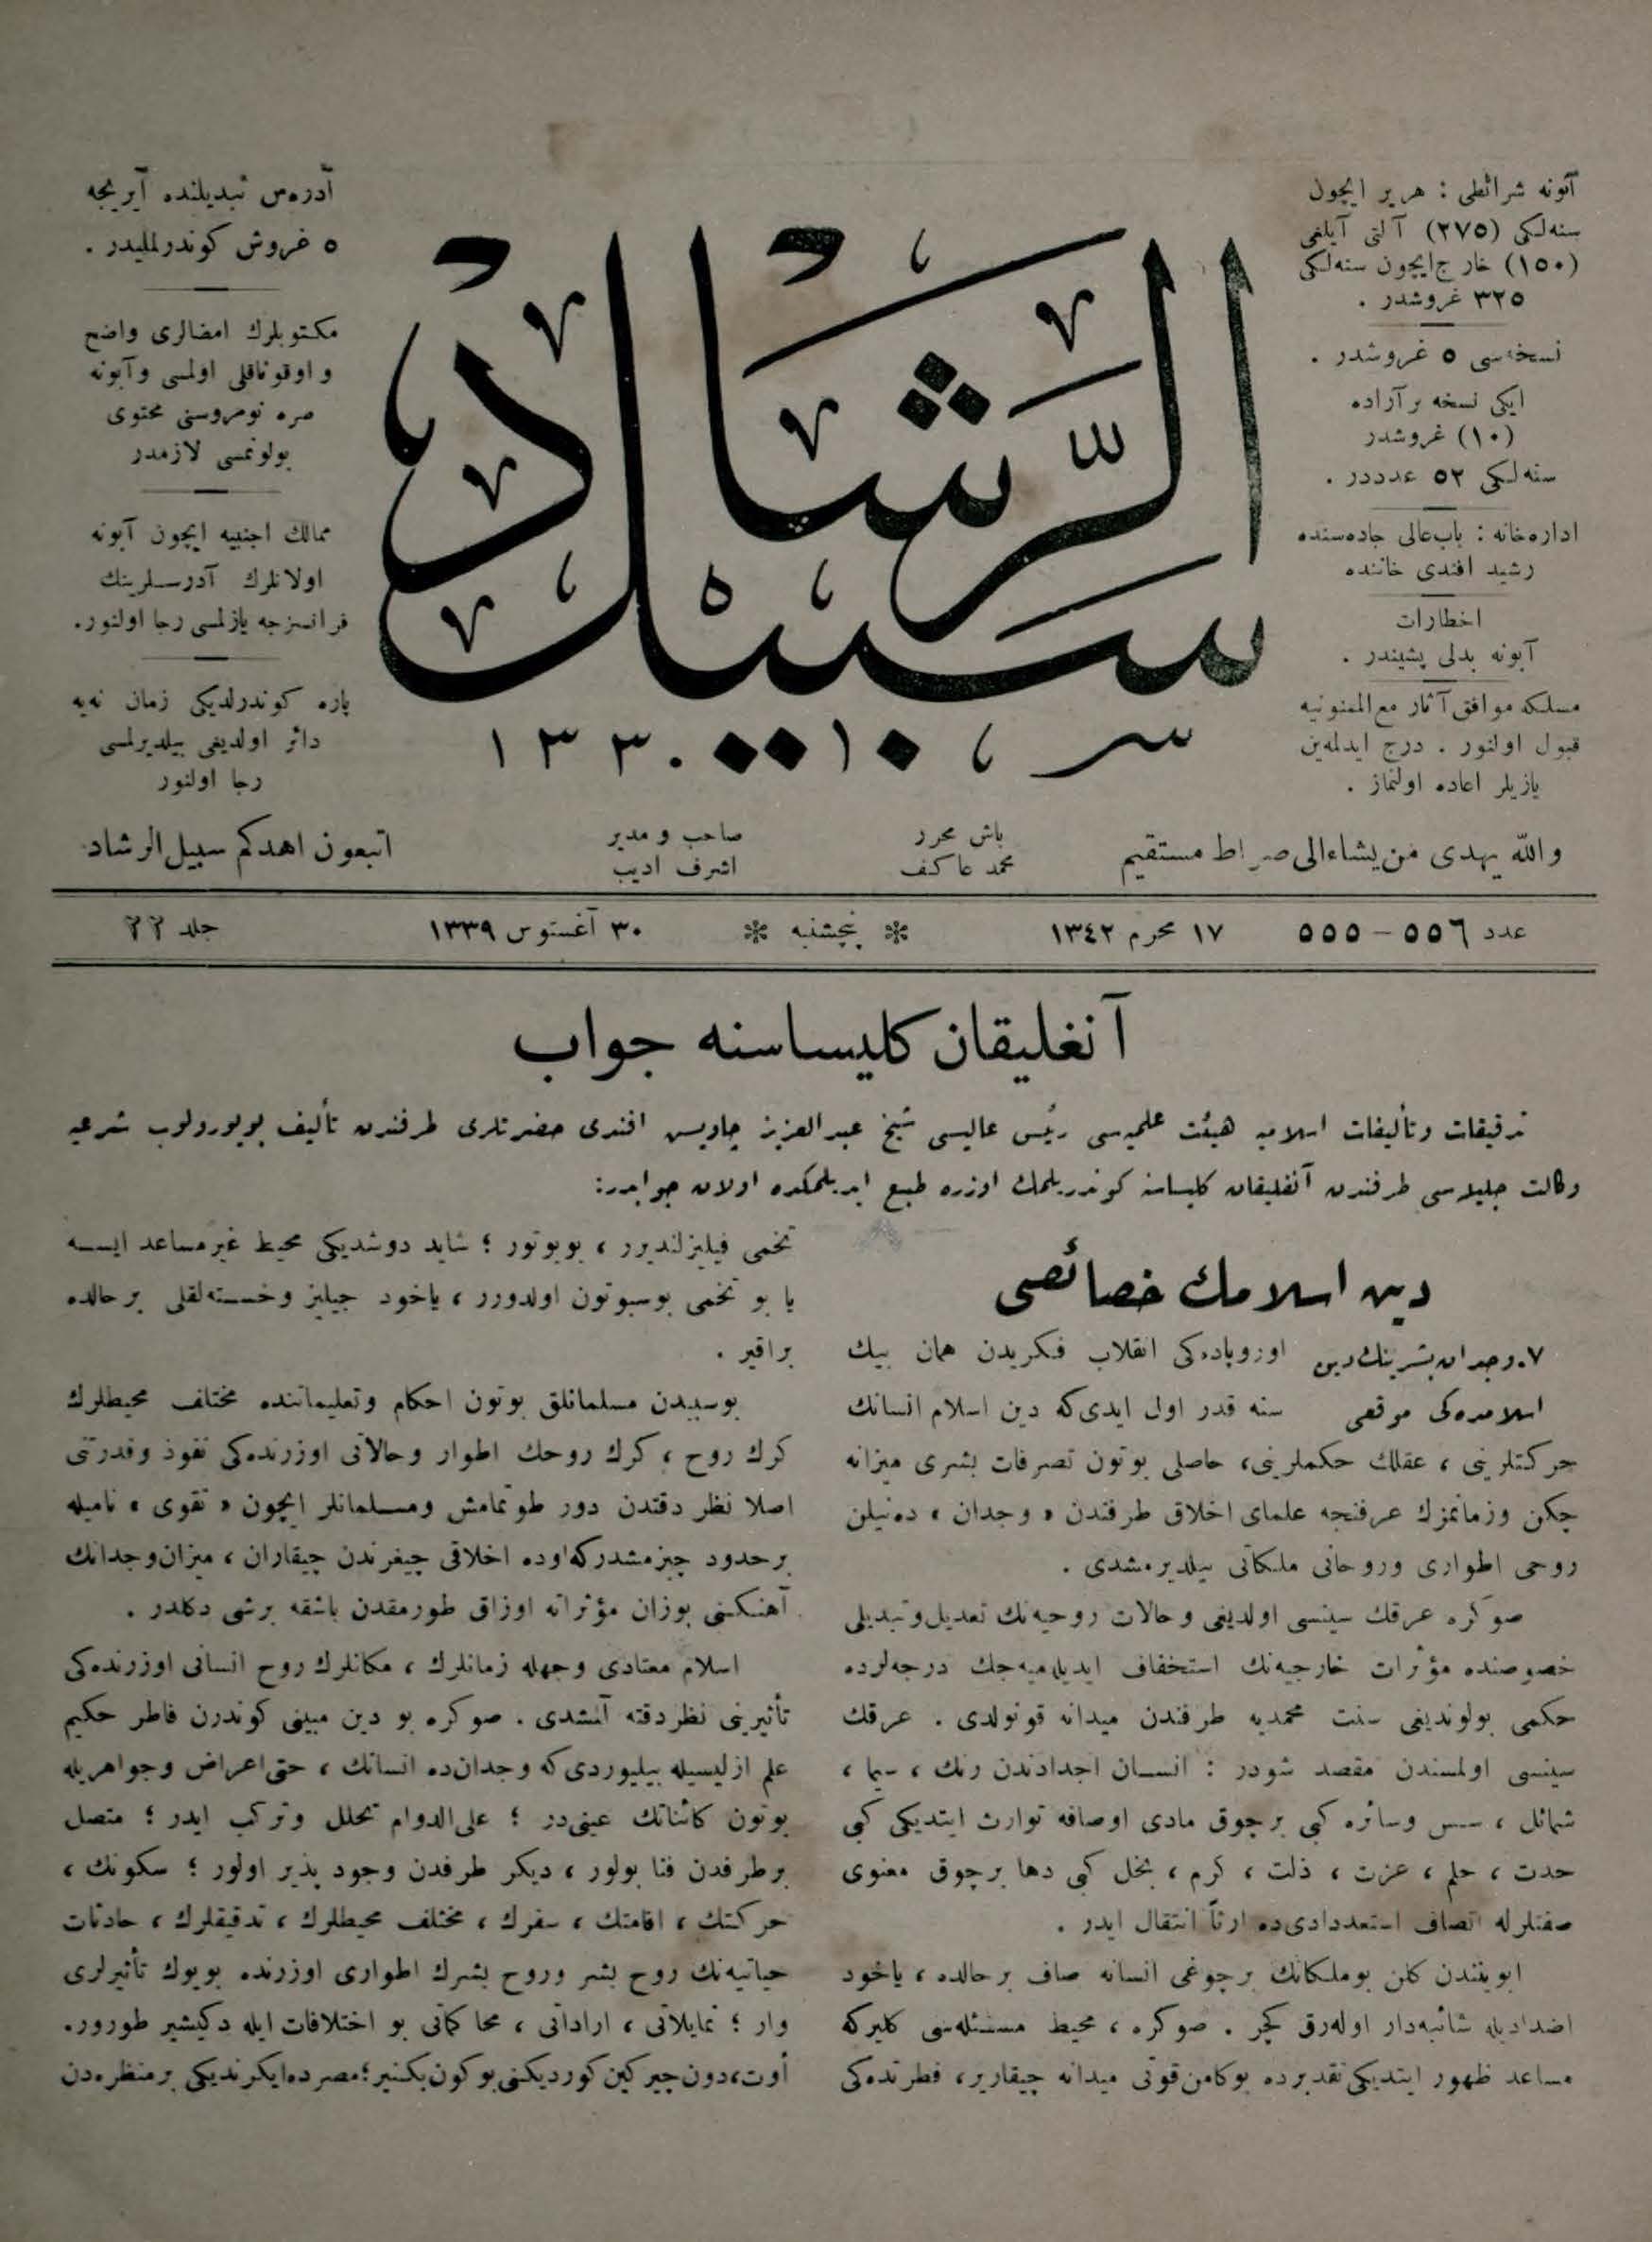 آبونه شرائطی : هر یر ایچون
سنه‌لکی (٢٧٥) آلتی آیلغی
(١٥٠) خارج ایچون سنه‌لکی
٣٢٥ غروشدر .
نسخه‌سی ٥ غروشدر .
ایکی نسخه بر آراده
(١٠) غروشدر
سنه‌لکی ٥٢ عدددر .
اداره‌خانه : باب‌عالی جاده‌سنده
رشید افندی خاننده
اخطارات
آبونه بدلی پشیندر .
مسلکه موافق آثار مع‌الممنونیه
قبول اولنور . درج ایدلمه‌ین
یازیلر اعاده اولنماز .
سبیل الرشاد
١٣٣٠
آدره‌س تبدیلنده آیریجه
٥ غروش کوندرلملیدر .
مکتوبلرك امضالری واضح
و اوقوناقلی اولمسی وآبونه
صره نومروسنی محتوی
بولونمسی لازمدر
ممالك اجنبیه ایچون آبونه
اولانلرك آدرسلرینك
فرانسزجه یازلمسی رجا اولنور.
پاره کوندرلدیکی زمان نه‌یه
دائر اولدیغی بیلدیرلمسی
رجا اولنور
والله یهدی من یشاء الی صراط مستقیم
باش محرر
محمد عاکف
صاحب و مدیر
اشرف ادیب
اتبعون اهدکم سبیل الرشاد
عدد ٥٥٦ – ٥٥٥ ١٧ محرم ١٣٤٢ * پنجشنبه * ٣٠ آغستوس ١٣٣٩ جلد ٢٢
آنغلیقان کلیساسنه جواب
تدقیقات وتألیفات اسلامیه هیئت علمیه‌سی رئیس عالیسی شیخ عبدالعزیز چاویش افندی حضرتلری طرفندن تألیف بویورولوب شرعیه
وکالت جلیله‌سی طرفندن آنغلیقان کلیسانه کوندریلمك اوزره طبع ایدیلمکده اولان جوابدر:
دین اسلامك خصائصی
٧.وجدان بشرینك دین اوروپاده‌کی انقلاب فکریدن همان بیك
اسلامده‌کی موقعی سنه قدر اول ایدی‌که دین اسلام انسانك
حرکتلرینی ، عقلك حکملرینی، حاصلی بوتون تصرفات بشری میزانه
چکن وزمانمزك عرفنجه علمای اخلاق طرفندن « وجدان » ده‌نیلن
روحی اطواری وروحانی ملکاتی بیلدیرمشدی .
صوکره عرقك سینسی اولدیغی وحالات روحیه‌نك تعدیل وتبدیلی
خصوصنده مؤثرات خارجیه‌نك استخفاف ایدیله‌میه‌جك درجه‌لرده
حکمی بولوندیغی سنت محمدیه طرفندن میدانه قونولدی . عرقك
سینسی اولمسندن مقصد شودر : انسان اجدادندن رنك ، سیما ،
شمائل ، سس وسائره کبی برچوق مادی اوصافه توارث ایتدیکی کبی
حدت ، حلم ، عزت ، ذلت ، کرم ، بخل کبی دها برچوق معنوی
صفتلرله اتصاف استعددادی‌ده ارثاً انتقال ایدر .
ابویندن کلن بوملکاتك برچوغی انسانه صاف برحالده ، یاخود
اضدادیله شائبه‌دار اوله‌رق کچر . صوکره ، محیط مسئله‌سی کلیرکه
مساعد ظهور ایتدیکی تقدیرده بوکامن قوتی میدانه چیقاریر، فطرتده‌کی
تخمی فیلیزلندیرر ، بویوتور ؛ شاید دوشدیکی محیط غیرمساعد ایسه
یا بو تخمی بوسبوتون اولدورر ، یاخود جیلیز وخسته‌لقلی برحالده
براقیر .
بوسببدن مسلمانلق بوتون احکام وتعلیماتنده مختلف محیطلرك
کرك روح ، کرك روحك اطوار وحالاتی اوزرنده‌کی نفوذ وقدرتی
اصلا نظر دقتدن دور طوتمامش ومسلمانلر ایچون « تقوی » نامیله
برحدود چیزمشدرکه اوده اخلاقی چیغرندن چیقاران ، میزان وجدانك
آهنکنی بوزان مؤثراته اوزاق طورمقدن باشقه برشی دکلدر .
اسلام معتادی وجهله زمانلرك ، مکانلرك روح انسانی اوزرنده‌کی
تأثیرینی نظردقته آلمشدی . صوکره بو دین مبینی کوندرن فاطر حکیم
علم ازلیسیله بیلیوردی‌که وجدان‌ده انسانك ، حتی اعراض وجواهریله
بوتون کائناتك عینی‌در ؛ علی‌الدوام تحلل وترکب ایدر ؛ متصل
برطرفدن فنا بولور ، دیکر طرفدن وجود پذیر اولور ؛ سکونك ،
حرکتك ، اقامتك ، سفرك ، مختلف محیطلرك ، تدقیقلرك ، حادثات
حیاتیه‌نك روح بشر وروح بشرك اطواری اوزرنده بویوك تأثیرلری
وار ؛ تمایلاتی ، اراداتی ، محاکماتی بو اختلافات ایله دکیشیر طورور.
أوت، دون چیرکین کوردیکنی بوکون بکنیر؛ مصرده ایکرندیکی برمنظره‌دن